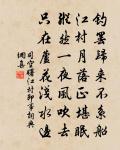 釣罷歸來不系船
江村月落正堪眠
縱然一夜風吹去
只在蘆花淺水邊
司空曙江村即事詞典
網喜